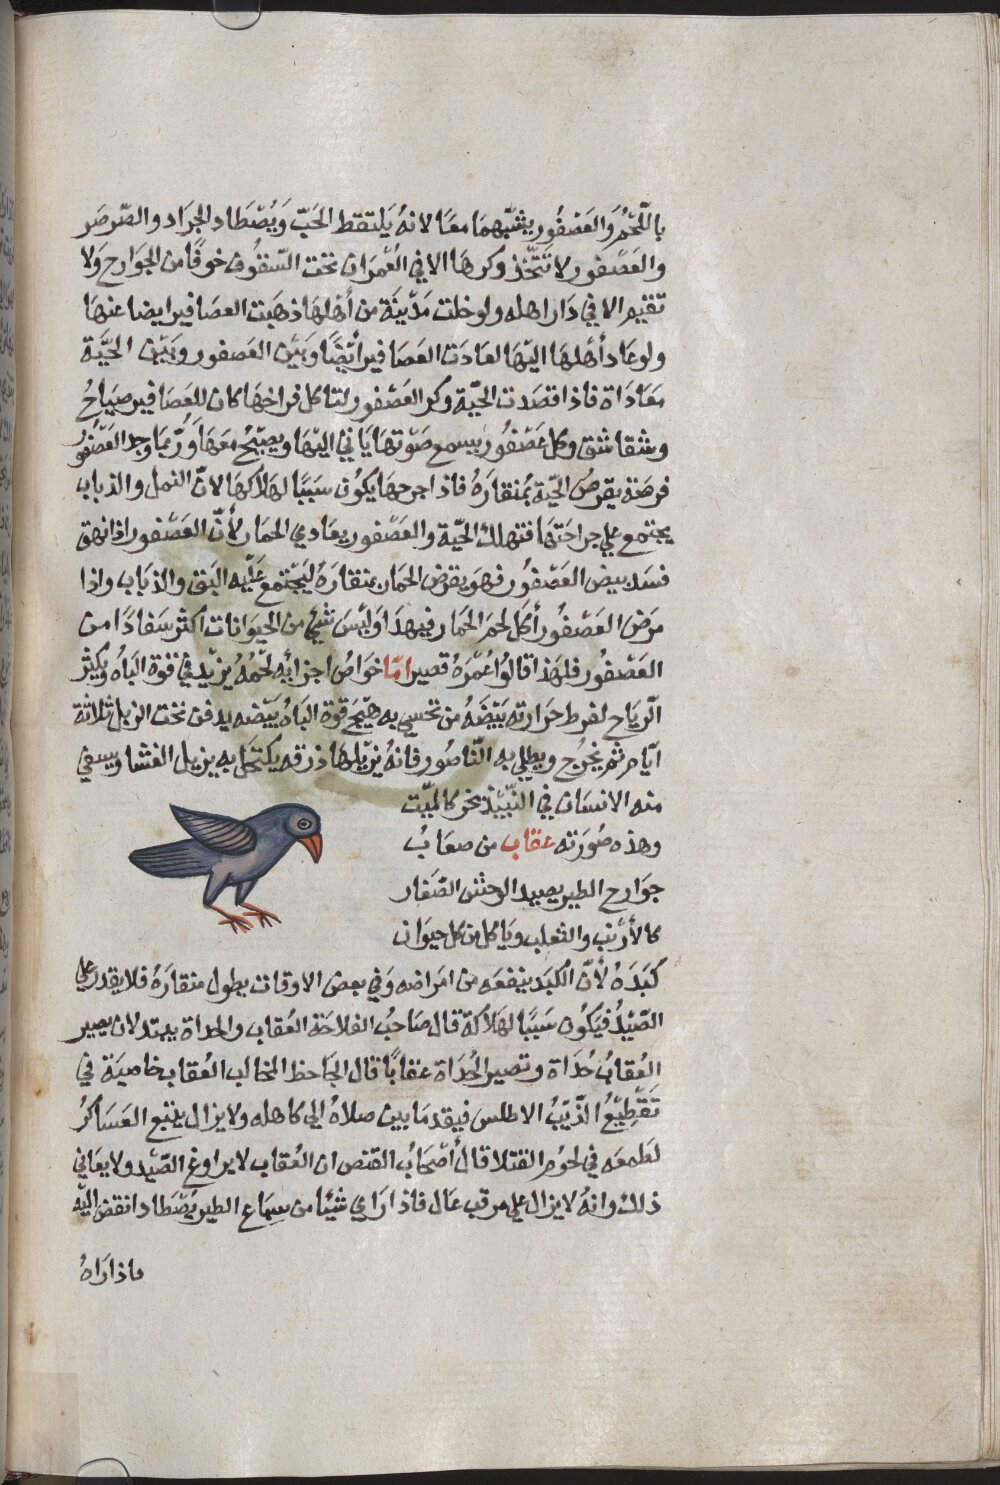 باللحم والعصفور يشبههما معا لانه يلتقط الحب ويصطاد الجراد والصرصر
والعصفور لا تتخذ وكرها الا في العمران تحت السقوف خوفا من الجوارح ولا
تقيم الا في دار اهله ولو خلت مدينة من أهلها ذهبت العصافير ايضا عنها
ولو عاد أهلها اليها لعادت العصافير أيضا وبين العصفور وبين الحية
معاداة فاذا قصدت الحية وكر العصفور لتاكل فراخها كان للعصافير صياح
وشقاشق وكل عصفور يسمع صوتها ياتي اليها ويصيح معها وربما وجد العصفور
فرصة يقرص الحية بمنقاره فاذا جرحها يكون سببا لهلاكها لان النمل والذباب
يجتمع علي جراحتها فتهلك الحية والعصفور يعادي الحمار لأن العصفور اذا نهق
فسد بيض العصفور فهو يقرض الحمار بمنقاره ليجتمع عليه البق والذباب واذا
مرض العصفور أكل لحم الحمار فيهدا وليس شئ من الحيوانات اكثر سفادا من
العصفور فلهذا قالوا عمره قصير امّا خواص اجزائه لحمه يزيد في قوة الباه ويكثر
الرياح لفرط حرارته بيضه من تحسي به هيج قوة الباه بيضه يدفن تحت الزبل ثلاثة
ايام ثم يخرج ويطلي به الناصور فانه يزيلها ذرقه يكتحل به يزيل الغشا ويسقي
منه الانسان في النبيذ يخر كالميت
وهذه صورته عقاب من صعاب
جوارح الطير يصيد الوحش الصغار
كالأرنب والثعلب وياكل من كل حيوان
كبده لأن الكبد ينفعه من امراضه وفي بعض الاوقات يطول منقاره فلا يقدر علي
الصيد فيكون سببا لهلاكه قال صاحب الفلاحة العقاب والحداة يبتدلان يصير
العقاب حداة وتصير الحداة عقابا قال الجاحظ المخالب العقاب خاصية في
تقطيع الذيب الاطلس فيقد ما بين صلاه الي كاهله ولا يزال يتبع العساكر
لطمعه في لحوم القتلا قال أصحاب القنص ان العقاب لا يراوغ الصيد ولا يعاني
ذلك وانه لا يزال علي مرقب عال فاذا راي شيئا من سباع الطير يصطاد انقض اليه
فاذا راه